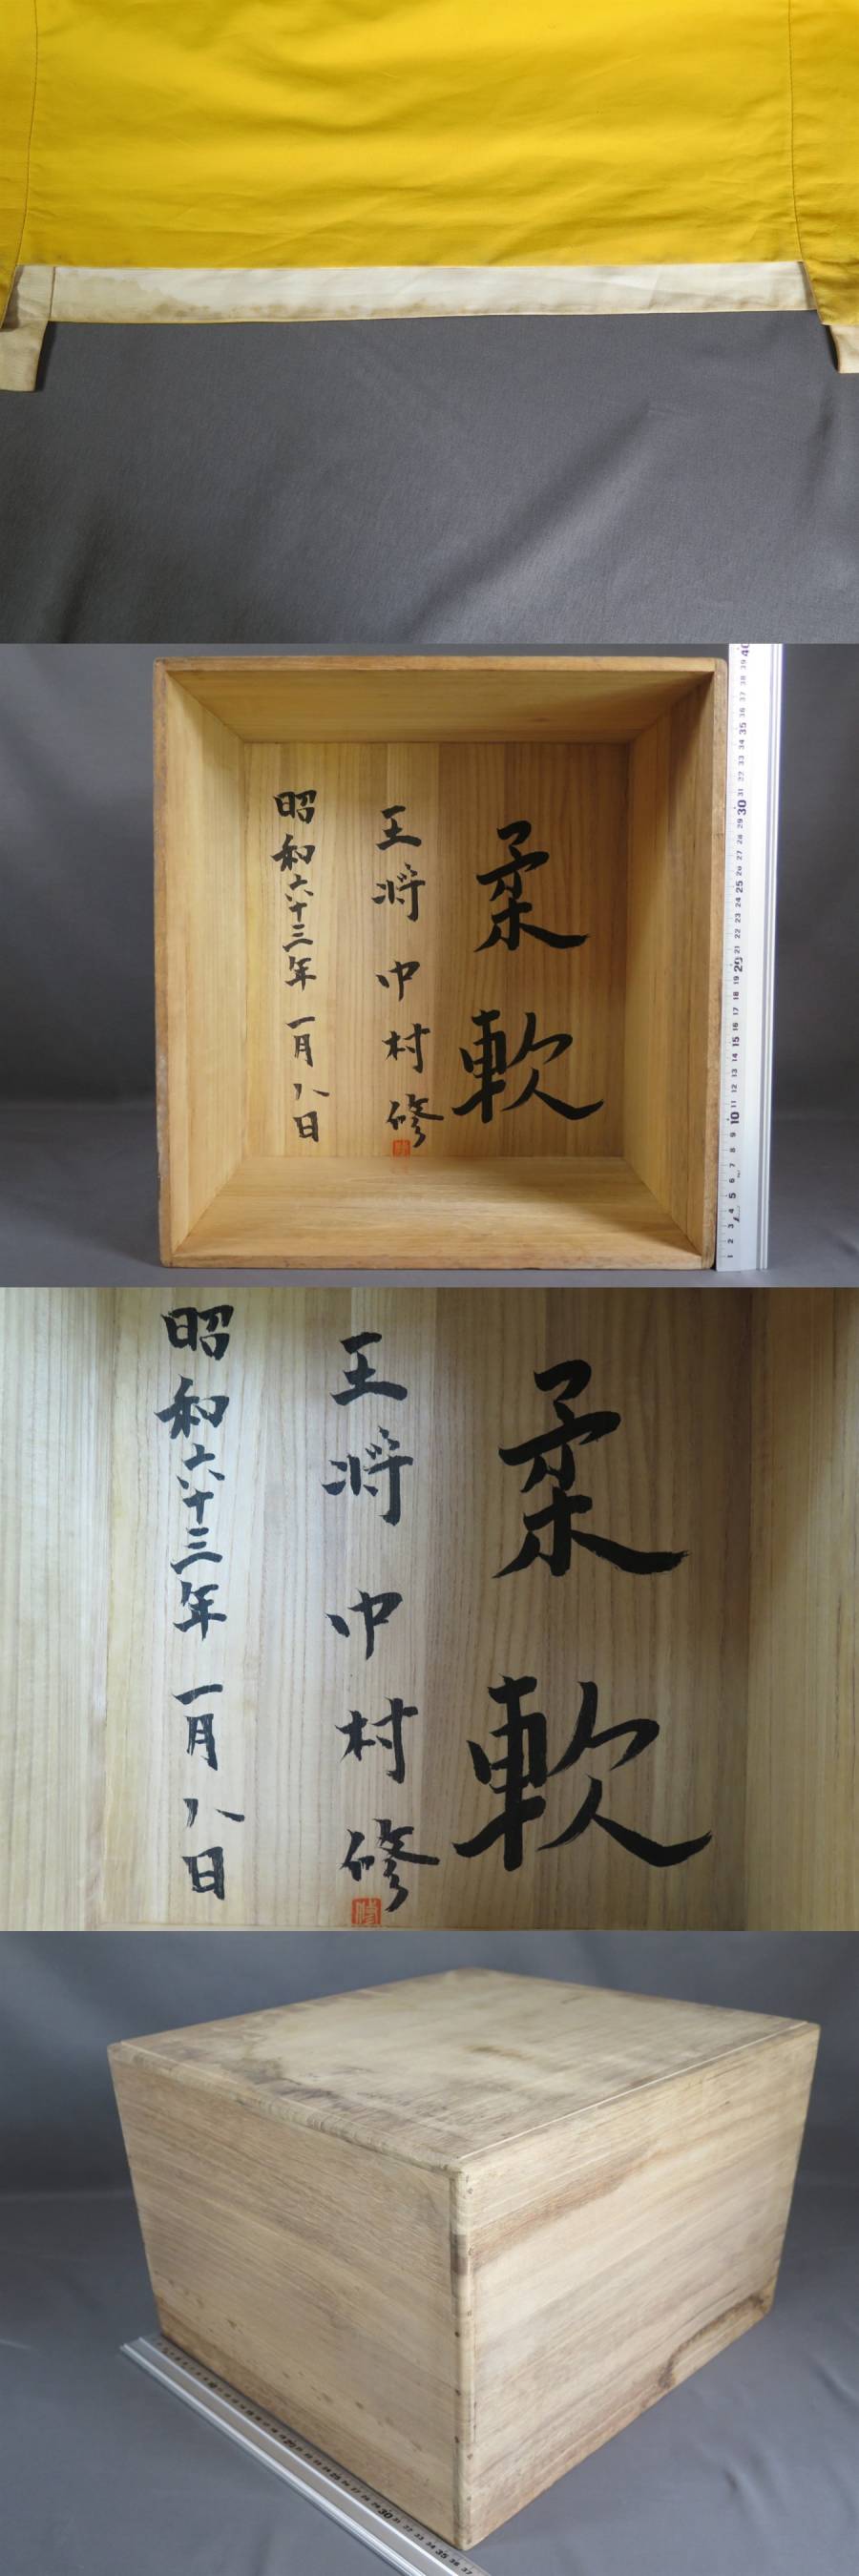 柔軟
王将 中村修
昭和六十三年 一月八日
柔軟
王将 中村修
修
昭和六十三年 一月八日